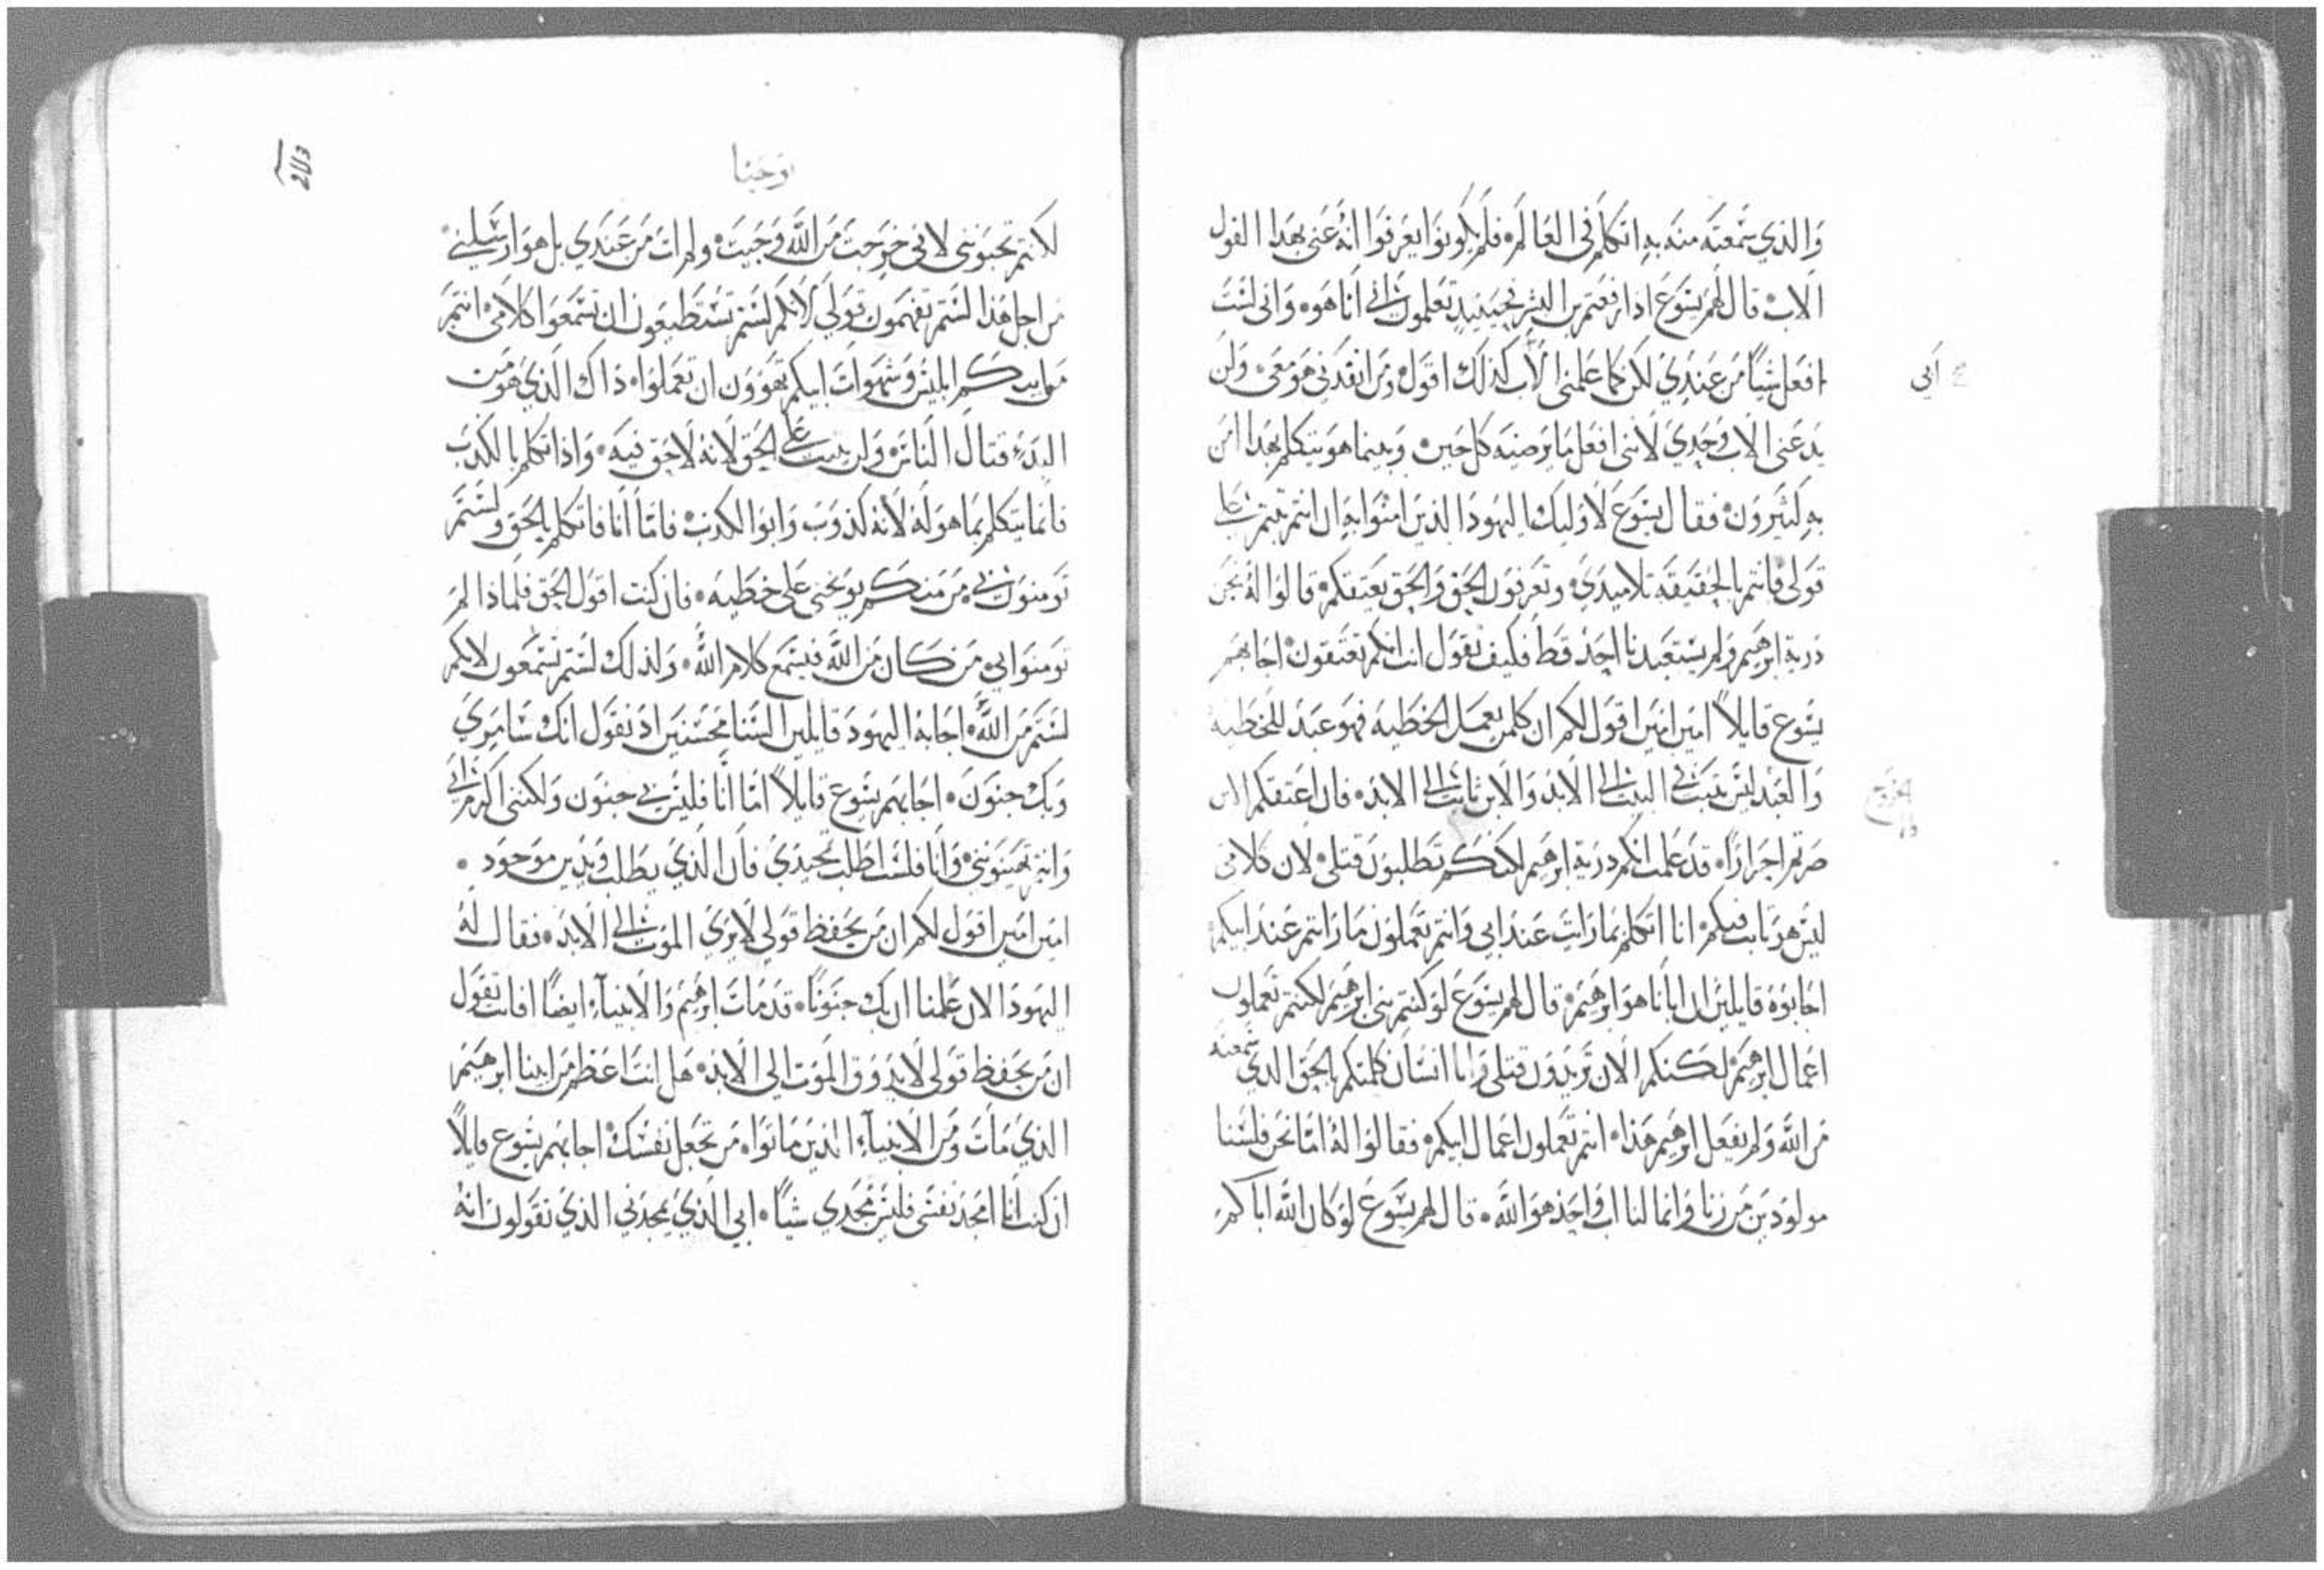 والذي سمعته منه به اتكلم في العالم فلم يكونوا يعرفوا انه عنى بهذا القول
الاب قال لهم يسوع اذا رفعتم بن البشر فحينيذ تعلموا اني انا هو واني لست
افعل شيًا من عندي لكن كما علمني الاب كذلك اقول ومن انفدني هو معي ولن
ابي
يدعني الاب وحدي لانني افعل ما يرضيه كل حين وبينما هو يتكلم بهذا امن
به كثيرون فقال يسوع لاوليك اليهود الذين امنوا به ان انتم ثبتم على
قولي فانتم بالحقيقة تلاميدي وتعرفون الحق والحق يعتقكم قالوا له نحن
ذرية ابرهيم ولم يستعبدنا احد قط فكيف تقول انت انكم تعتقون اجابهم
يسوع قايلاً امين امين اقول لكم ان كلمن يعمل الخطيه فهو عبد للخطيه
والعبد ليس يثبت في البيت الى الابد والابن ثابت الى الابد فان اعتقكم الابن
صرتم احرارًا قد علمت انكم ذرية ابرهيم لكنكم تطلبون قتلي لان كلامي
ليس هو ثابت فيكم انا اتكلم بما رايت عند ابي وانتم تعملون ما رايتم عند ابيكم
اجابوه قايلين ان ابانا هو ابرهيم قال لهم يسوع لو كنتم بني ابرهيم لكنتم تعملون
اعمال ابرهيم لكنكم الان تريدون قتلي وانا انسان كلمتكم بالحق الذي سمعته
من الله ولم يفعل ابرهيم هذا انتم تعملون اعمال ابيكم فقالوا له اما نحن فلسنا
مولودين من زنا وانما لنا اب واحد هو الله قال لهم يسوع لو كان الله اباكم
يوحنا
لكنتم تحبونني لاني خرجت من الله وجيت ولم ات من عندي بل هو ارسلني
من اجل هذا لستم تفهمون قولي لانكم لستم تستطيعون ان تسمعوا كلامي انتم
من ابيكم ابليس وشهوات ابيكم تهوون ان تعملوا ذاك الذي هو من
البدء قتال الناس ولن يثبت على الحق لانه لا حق فيه واذا تكلم بالكدب
فانما يتكلم بما هو له لانه كذوب وابو الكدب فاما انا فاتكلم بالحق ولستم
تومنون بي من منكم يوبخني على خطيه فان كنت اقول الحق فلماذا لم
تومنوا بي من كان من الله فيسمع كلام الله ولذلك لستم تسمعون لانكم
لستم من الله اجابه اليهود قايلين السنا محسنين اذ نقول انك سامري
وبك جنون اجابهم يسوع قايلاً اما انا فليس بي جنون ولكنني اكرم ابي
وانتم تهينونني وانا فلست اطلب تمجيدي فان الذي يطلب ويدين موجود
امين امين اقول لكم ان من يحفظ قولي لا يرى الموت الى الابد فقال له
اليهود الان علمنا ان بك جنونًا قد مات ابرهيم والانبياء ايضًا افانت تقول
ان من يحفظ قولي لا يذوق الموت الى الابد هل انت اعظم من ابينا ابرهيم
الذي مات ومن الانبياء الذين ماتوا من تجعل نفسك اجابهم يسوع قايلاً
ان كنت انا امجد نفسي فليس مجدي شيًا ابي الذي يمجدني الذي تقولون انه